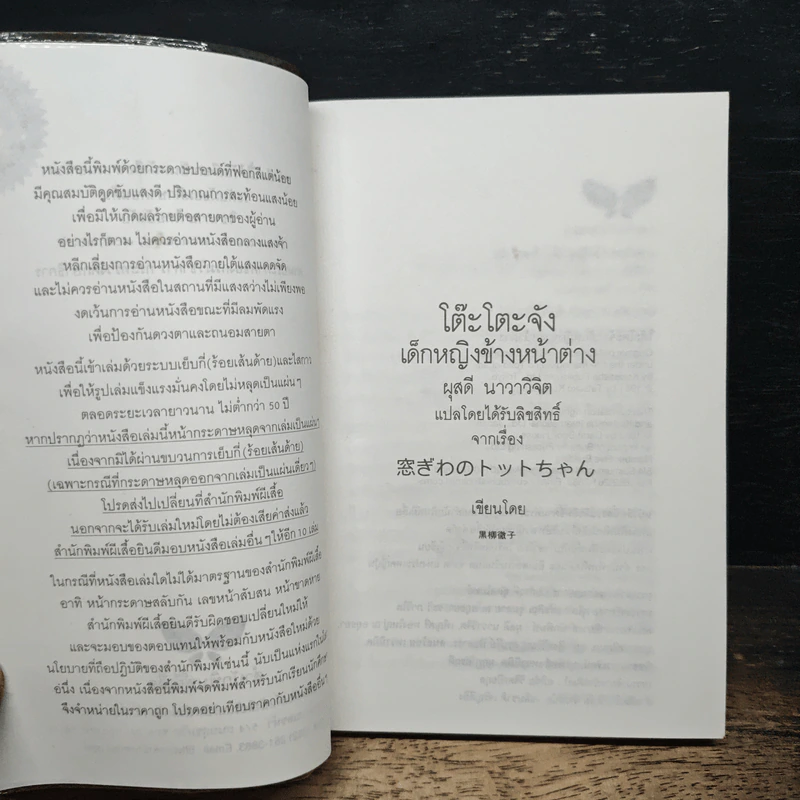 หนังสือนี้พิมพ์ด้วยกระดาษปอนด์ที่ฟอกสีแต่น้อย
มีคุณสมบัติดูดซับแสงดี ปริมาณการสะท้อนแสงน้อย
เพื่อมิให้เกิดผลร้ายต่อสายตาของผู้อ่าน
อย่างไรก็ตาม ไม่ควรอ่านหนังสือกลางแสงจ้า
หลีกเลี่ยงการอ่านหนังสือภายใต้แสงแดดจัด
และไม่ควรอ่านหนังสือในสถานที่มีแสงสว่างไม่เพียงพอ
งดเว้นการอ่านหนังสือขณะที่มีลมพัดแรง
เพื่อป้องกันดวงตาและถนอมสายตา
หนังสือนี้เข้าเล่มด้วยระบบเย็บกี่(ร้อยเส้นด้าย)และไสกาว
เพื่อให้รูปเล่มแข็งแรงมั่นคงโดยไม่หลุดเป็นแผ่นๆ
ตลอดระยะเวลายาวนาน ไม่ต่ำกว่า 50 ปี
หากปรากฏว่าหนังสือเล่มนี้หน้ากระดาษหลุดจากเล่มเป็นแผ่นๆ
เนื่องจากมิได้ผ่านขบวนการเย็บกี่ (ร้อยเส้นด้าย)
(เฉพาะกรณีที่กระดาษหลุดออกจากเล่มเป็นแผ่นเดี่ยวๆ)
โปรดส่งไปเปลี่ยนที่สำนักพิมพ์ผีเสื้อ
นอกจากจะได้รับเล่มใหม่โดยไม่ต้องเสียค่าส่งแล้ว
สำนักพิมพ์ผีเสื้อยินดีมอบหนังสือเล่มอื่นๆให้อีก 10 เล่ม
ในกรณีที่หนังสือเล่มใดไม่ได้มาตรฐานของสำนักพิมพ์ผีเสื้อ
อาทิ หน้ากระดาษสลับกัน เลขหน้าสับสน หน้าขาดหาย
สำนักพิมพ์ผีเสื้อยินดีรับผิดชอบเปลี่ยนใหม่ให้
และจะมอบของตอบแทนให้พร้อมกับหนังสือใหม่ด้วย
นโยบายที่ถือปฏิบัติของสำนักพิมพ์เช่นนี้ นับเป็นแห่งแรก
อนึ่ง เนื่องจากหนังสือนี้พิมพ์จัดพิมพ์สำหรับนักเรียนนักศึกษา
จึงจำหน่ายในราคาถูก โปรดอย่าเทียบราคากับหนังสืออื่นๆ
โต๊ะโตะจัง
เด็กหญิงข้างหน้าต่าง
ผุสดี นาวาวิจิต
แปลโดยได้รับลิขสิทธิ์
จากเรื่อง
窓ぎわのトットちゃん
เขียนโดย
黒柳徹子